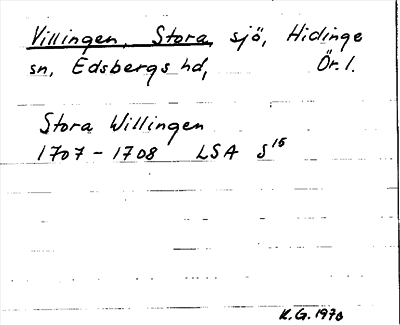 Villingen, Stora, sjö, Hidinge
sn, Edsbergs hd, Ör. l.
Stora Willingen
1707 - 1708 LSA S 15
K.G. 1970